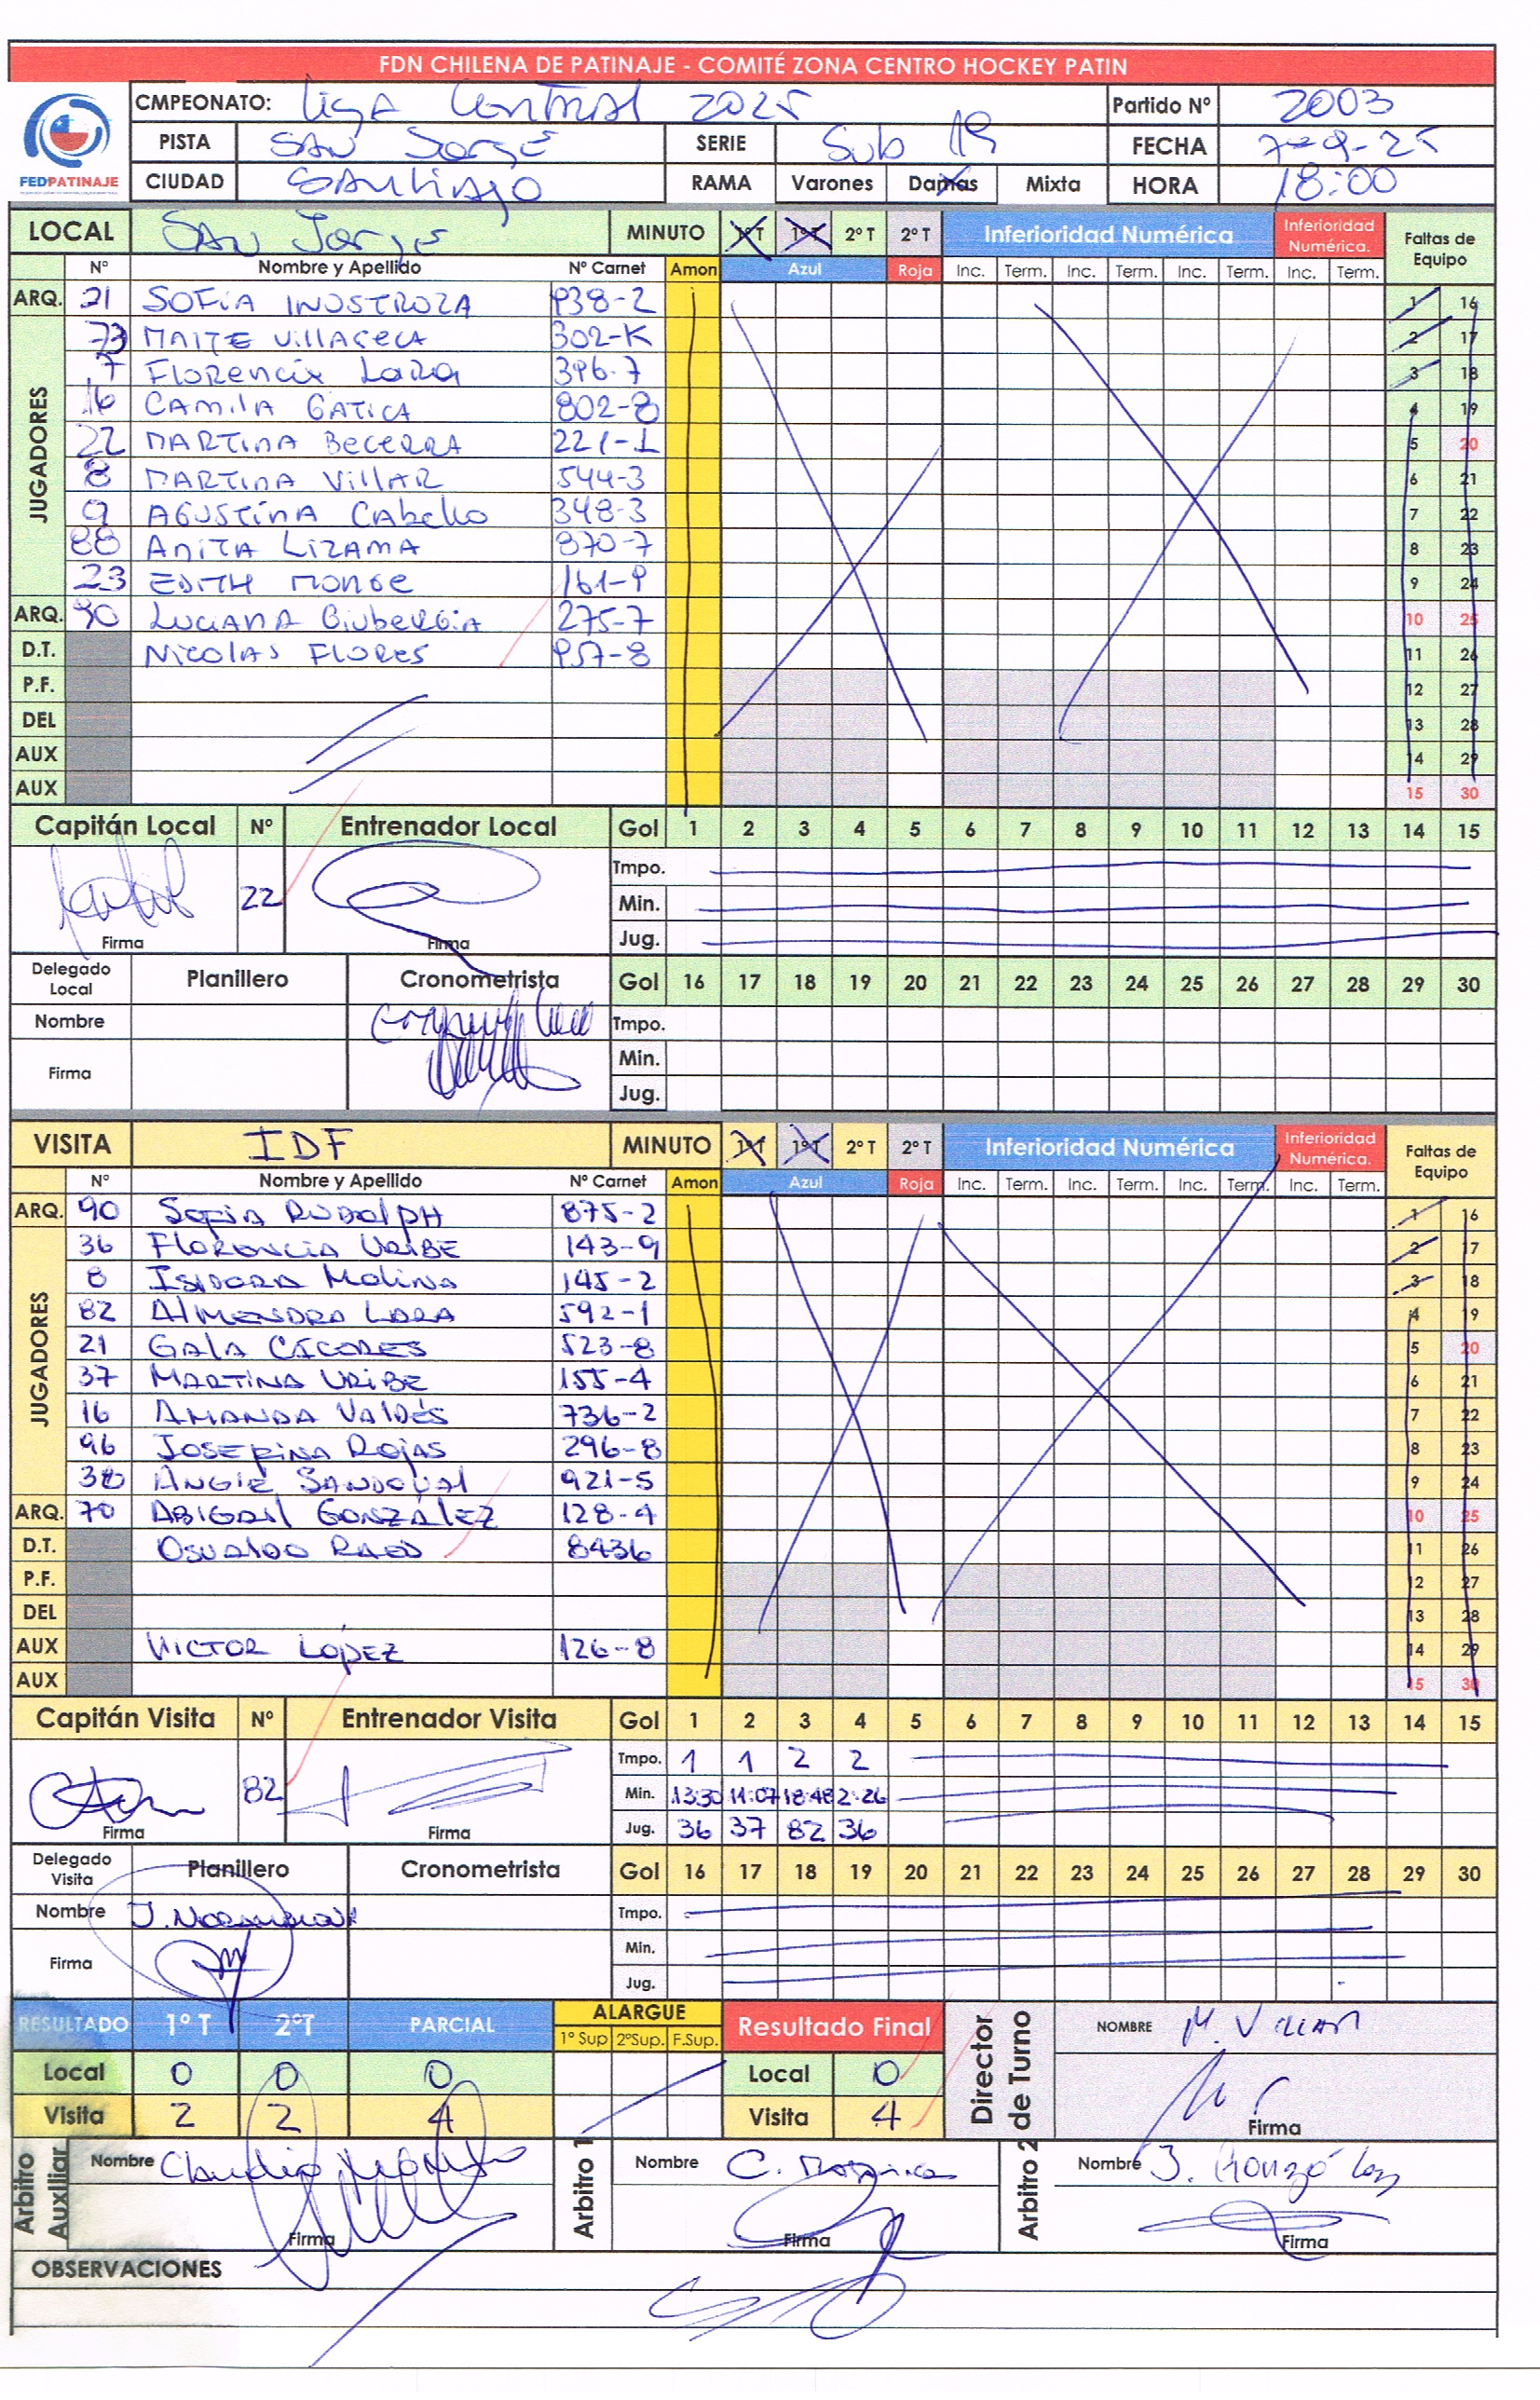 FDN CHILENA DE PATINAJE - COMITÉ ZONA CENTRO HOCKEY PATIN
CMPEONATO: Liga Central 2025 Partido Nº 2003
PISTA San Jorge SERIE Sub 19 FECHA 7-9-25
FEDPATINAJE CIUDAD Santiago RAMA Varones Damas Mixta HORA 18:00
LOCAL San Jorge MINUTO 1º T 1º T 2º T 2º T Inferioridad Numérica Inferioridad Numérica. Faltas de Equipo
Nº Nombre y Apellido Nº Carnet Amon Azul Roja Inc. Term. Inc. Term. Inc. Term. Inc. Term.
JUGADORES
ARQ. 21 SOFIA INOSTROZA 938-2 1 16
73 MAITE VILLASECA 302-K 2 17
7 Florencia Lara 396-7 3 18
16 CAMILA GATICA 802-8 4 19
22 MARTINA BECERRA 221-1 5 20
8 MARTINA VILLAR 544-3 6 21
9 AGUSTINA CABELLO 348-3 7 22
88 ANITA LIZAMA 870-7 8 23
23 EDITH MONGE 161-9 9 24
ARQ. 90 LUCIANA Giubergia 275-7 10 25
D.T. NICOLAS FLORES 957-8 11 26
P.F. 12 27
DEL 13 28
AUX 14 29
AUX 15 30
Capitán Local Nº Entrenador Local Gol 1 2 3 4 5 6 7 8 9 10 11 12 13 14 15
Tmpo.
22 Min.
Firma Firma Jug.
Delegado Local Planillero Cronometrista Gol 16 17 18 19 20 21 22 23 24 25 26 27 28 29 30
Nombre Tmpo.
Firma Min.
Jug.
VISITA IDF MINUTO 1º T 1º T 2º T 2º T Inferioridad Numérica Inferioridad Numérica. Faltas de Equipo
Nº Nombre y Apellido Nº Carnet Amon Azul Roja Inc. Term. Inc. Term. Inc. Term. Inc. Term.
JUGADORES
ARQ. 90 SOFIA RUDOLPH 875-2 1 16
36 FLORENCIA URIBE 143-9 2 17
8 ISIDORA MOLINA 145-2 3 18
82 ALMENDRA LARA 592-1 4 19
21 GALA CÁCERES 523-8 5 20
37 MARTINA URIBE 155-4 6 21
16 AMANDA VALDÉS 736-2 7 22
96 JOSEFINA ROJAS 296-8 8 23
38 ANGIE SANDOVAL 921-5 9 24
ARQ. 70 ABIGAIL GONZÁLEZ 128-4 10 25
D.T. OSVALDO 8436 11 26
P.F. 12 27
DEL 13 28
AUX VICTOR LÓPEZ 126-8 14 29
AUX 15 30
Capitán Visita Nº Entrenador Visita Gol 1 2 3 4 5 6 7 8 9 10 11 12 13 14 15
Tmpo. 1 1 2 2
82 Min. 13:30 11:07 18:48 2:26
Firma Firma Jug. 36 37 82 36
Delegado Visita Planillero Cronometrista Gol 16 17 18 19 20 21 22 23 24 25 26 27 28 29 30
Nombre Tmpo.
Firma Min.
Jug.
RESULTADO 1º T 2ºT PARCIAL ALARGUE 1º Sup 2ºSup. F.Sup. Resultado Final Director de Turno NOMBRE M. Villar
Local 0 0 0 Local 0
Visita 2 2 4 Visita 4 Firma
Arbitro Auxiliar Nombre Claudio Arbitro 1 Nombre C. Arbitro 2 Nombre J. González
Firma Firma Firma
OBSERVACIONES